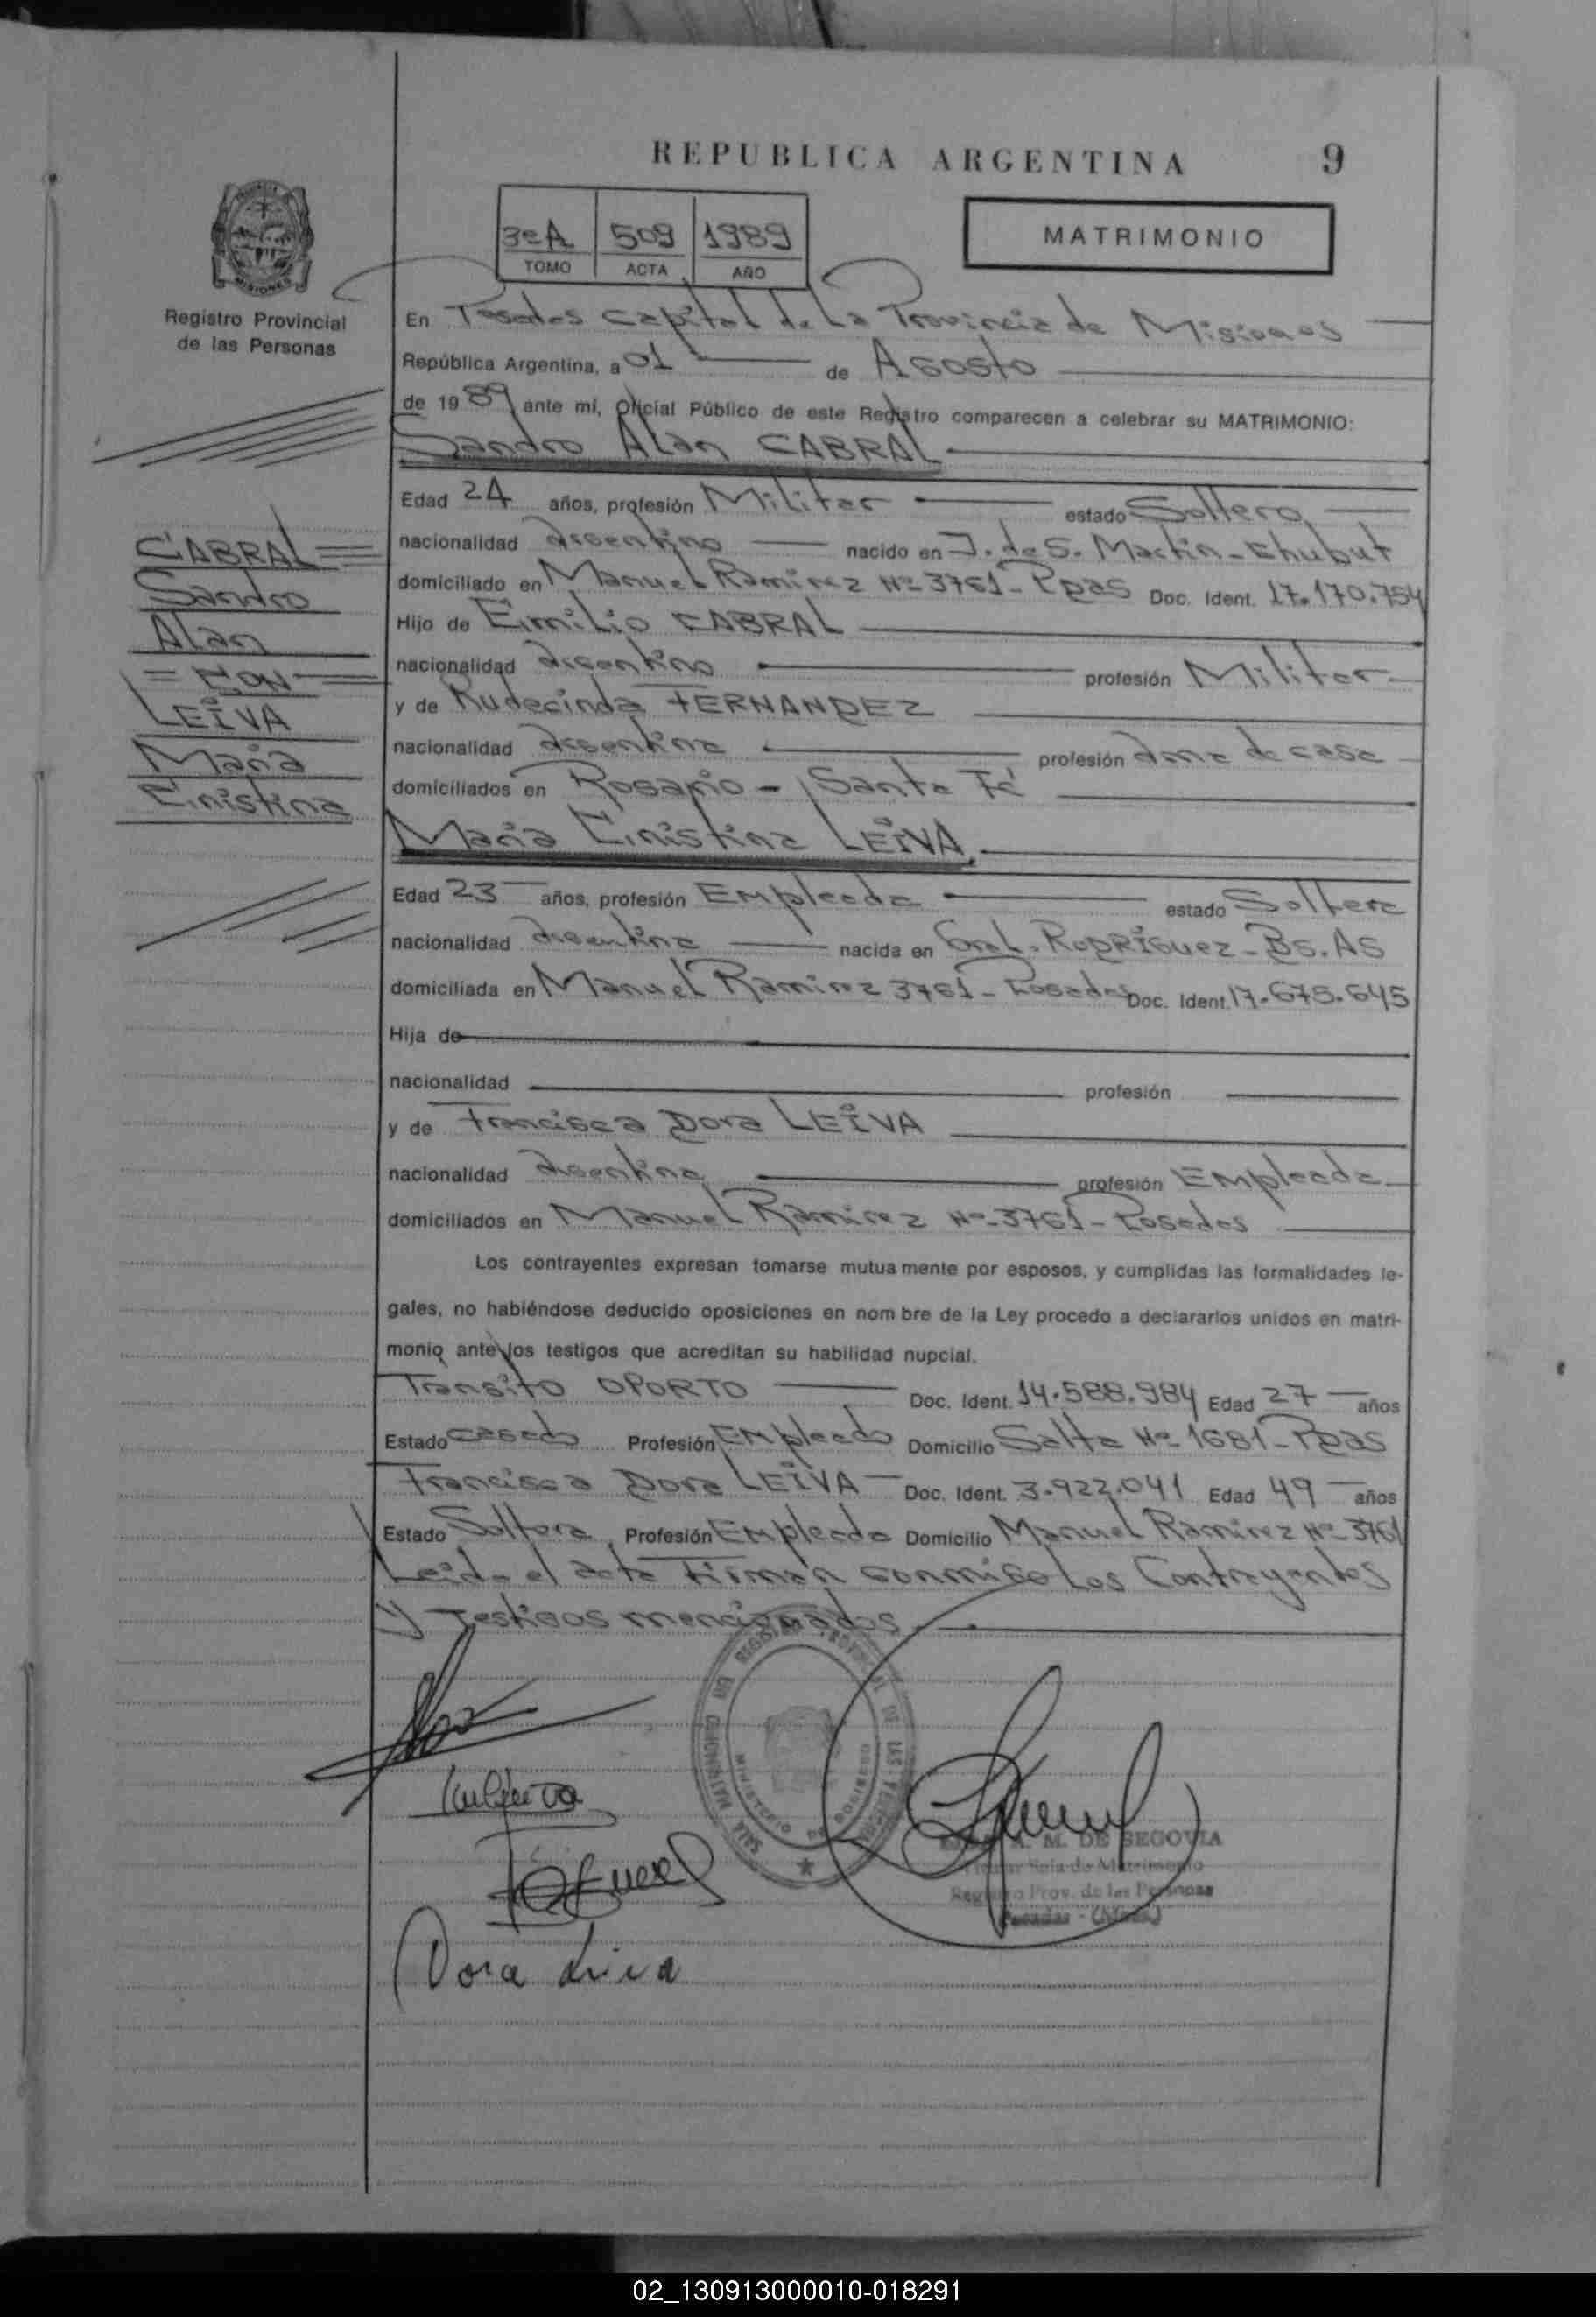 REPUBLICA ARGENTINA
9
3eA 509 1989
TOMO ACTA AÑO
MATRIMONIO
MISIONES
Registro Provincial
de las Personas
En Posadas Capital de La Provincia de Misiones
República Argentina, a 01 de Agosto
de 1989 ante mí, Oficial Público de este Registro comparecen a celebrar su MATRIMONIO:
Sandro Alan CABRAL
Edad 24 años, profesión Militar estado Soltero
nacionalidad argentino nacido en J. de S. Martin - Chubut
domiciliado en Manuel Ramirez Nº 3761 - Ppas Doc. Ident. 17.170.754
Hijo de Emilio CABRAL
nacionalidad argentino profesión Militar
y de Rudecinda FERNANDEZ
nacionalidad argentina profesión ama de casa
domiciliados en Rosario - Santa Fé
CABRAL
Sandro
Alan
= CON =
LEIVA
María
Cristina
María Cristina LEIVA
Edad 23 años, profesión Empleada estado Soltera
nacionalidad argentina nacida en Gral. RODRIGUEZ - Bs. AS
domiciliada en Manuel Ramirez 3761 - Posadas Doc. Ident. 17.675.645
Hija de
nacionalidad profesión
y de Francisca Dora LEIVA
nacionalidad argentina profesión Empleada
domiciliados en Manuel Ramirez Nº 3761 - Posadas
Los contrayentes expresan tomarse mutuamente por esposos, y cumplidas las formalidades le-
gales, no habiéndose deducido oposiciones en nombre de la Ley procedo a declararlos unidos en matri-
monio ante los testigos que acreditan su habilidad nupcial.
Transito OPORTO Doc. Ident. 14.588.984 Edad 27 años
Estado casado Profesión Empleado Domicilio Salta Nº 1681 - Ppas
Francisca Dora LEIVA Doc. Ident. 3.922.041 Edad 49 años
Estado Soltera Profesión Empleada Domicilio Manuel Ramirez Nº 3761
Leida el acta Firman conmigo Los Contrayentes
y Testigos mencionados
SALA MATRIMONIO REGISTRO PROVINCIAL DE LAS
MINISTERIO DE GOBIERNO
A. M. DE SEGOVIA
Sala de Matrimonio
Registro Prov. de las Personas
Posadas - (Mnes.)
Dora Leiva
02_130913000010-018291